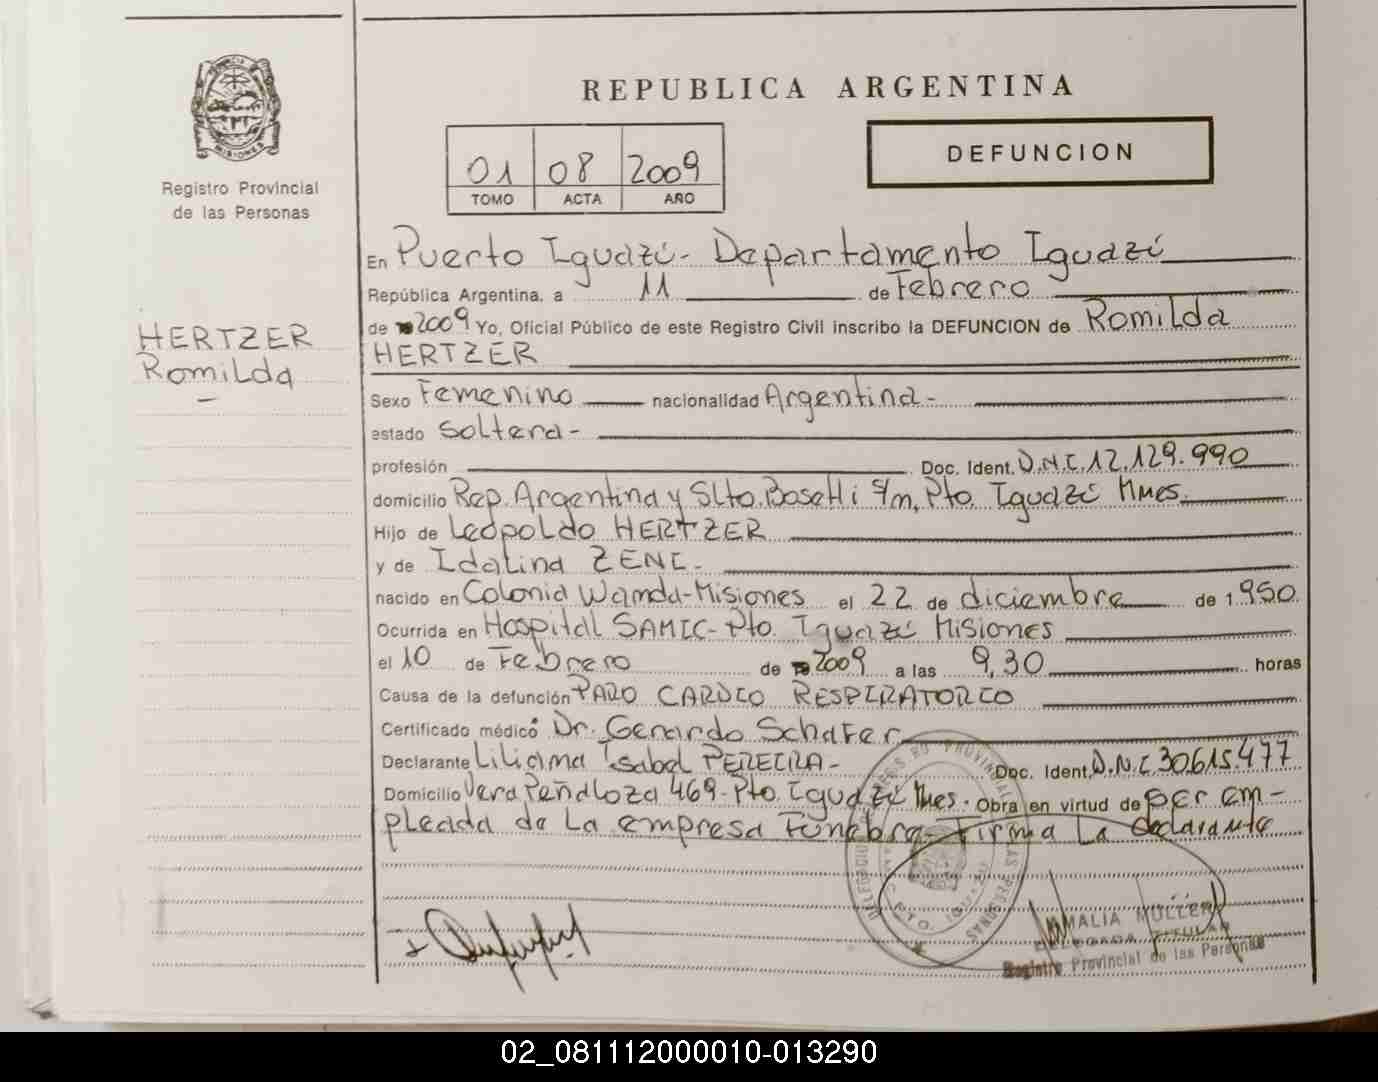 PROVINCIA DE
MISIONES
Registro Provincial
de las Personas
HERTZER
Romilda
REPUBLICA ARGENTINA
01 08 2009
TOMO ACTA AÑO
DEFUNCION
En Puerto Iguazú- Departamento Iguazú
República Argentina, a 11 de Febrero
de 2009 Yo, Oficial Público de este Registro Civil inscribo la DEFUNCION de Romilda
HERTZER
Sexo Femenino nacionalidad Argentina-
estado Soltera-
profesión Doc. Ident. D.N.I. 12.129.990
domicilio Rep. Argentina y Slto. Bosetti s/n, Pto. Iguazú Mnes.
Hijo de Leopoldo HERTZER
y de Idalina ZENI-
nacido en Colonia Wanda-Misiones el 22 de diciembre de 1.950.
Ocurrida en Hospital SAMIC-Pto. Iguazú Misiones
el 10 de Febrero de 2009 a las 9,30 horas
Causa de la defunción PARO CARDIO RESPIRATORIO
Certificado médico Dr. Gerardo Schafer
Declarante Liliana Isabel PEREIRA- Doc. Ident. D.N.I 30.615.477
Domicilio Vera Peñaloza 469-Pto. Iguazú Mnes. Obra en virtud de ser em-
pleada de la empresa Fúnebre- Firma la declarante
AMALIA MULLER
TITULAR
Registro Provincial de las Personas
02_081112000010-013290